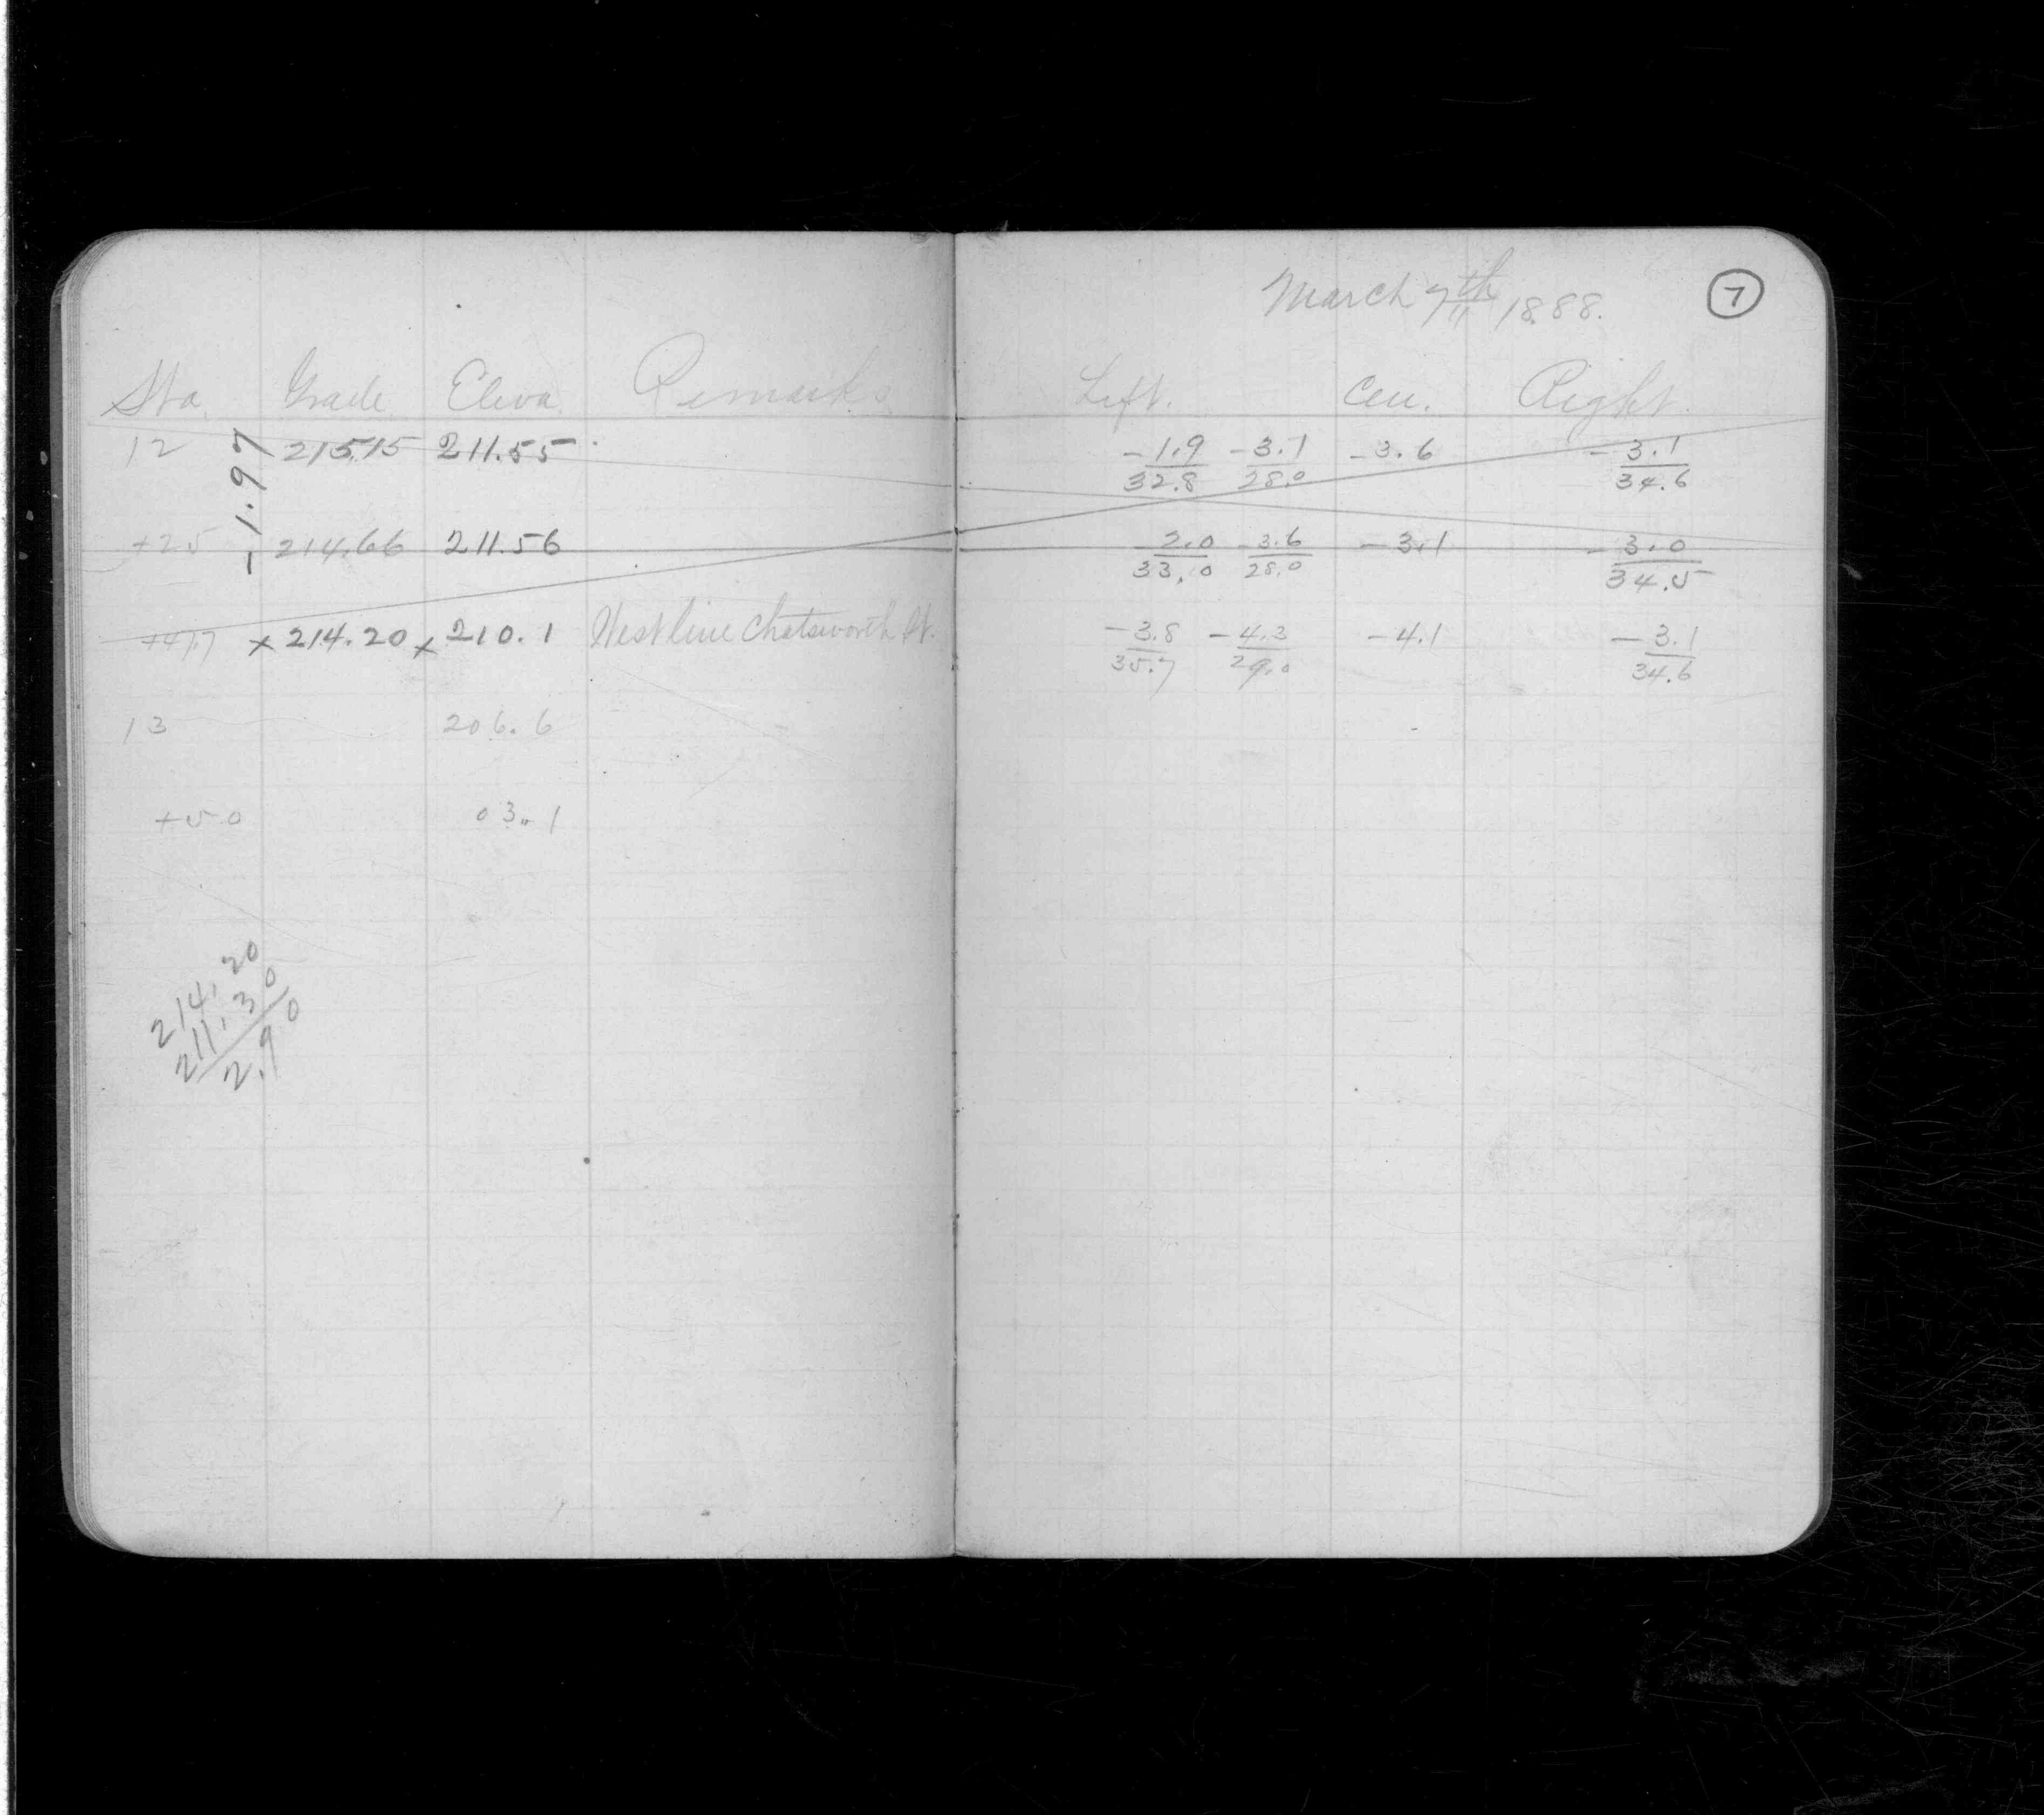 March 7th 1888.
7
Sta. Grade Eleva. Remarks Left. Cen. Right.
12 215.15 211.55 -1.9/32.8 -3.1/28.0 -3.6 -3.1/34.6
-1.97
+25 214.66 211.56 2.0/33.0 -3.6/28.0 -3.1 -3.0/34.5
+47.7 x 214.20 x 210.1 West line Chatsworth St. -3.8/35.7 -4.3/29.0 -4.1 -3.1/34.6
13 206.6
+50 03.1
214.20
211.30
2.90